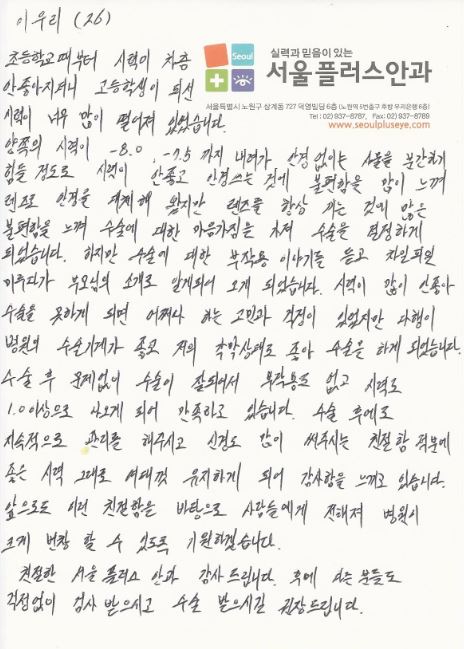 이우리 (26)
Seoul
실력과 믿음이 있는
서울플러스안과
서울특별시 노원구 상계동 727 덕영빌딩 6층 (노원역 5번출구 후방 우리은행 6층)
Tel : 02) 937-8787, Fax: 02) 937-8789
www.seoulpluseye.com
초등학교 때부터 시력이 차츰
안좋아지더니 고등학생이 되선
시력이 너무 많이 떨어져 있었습니다.
양쪽의 시력이 -8.0, -7.5 까지 내려가 안경 없이는 사물을 분간하기
힘들 정도로 시력이 안좋고 안경쓰는 것에 불편함을 많이 느껴
렌즈로 안경을 대체해 왔지만 렌즈를 항상 끼는 것에 많은
불편함을 느껴 수술에 대한 마음가짐을 가져 수술을 결정하게
되었습니다. 하지만 수술에 대한 부작용 이야기들 듣고 차일피일
미루다가 부모님의 소개로 알게되어 오게 되었습니다. 시력이 많이 안좋아
수술을 못하게 되면 어쩌나 하는 고민과 걱정이 있었지만 다행이
병원의 수술기계가 좋고 저의 각막상태도 좋아 수술을 하게 되었습니다.
수술 후 문제없이 수술이 잘되어서 부작용도 없고 시력도
1.0이상으로 나오게 되어 만족하고 있습니다. 수술 후에도
지속적으로 관리를 해주시고 신경도 많이 써주시는 친절함 덕분에
좋은 시력 그대로 여태껏 유지하게 되어 감사함을 느끼고 있습니다.
앞으로도 이런 친절함을 바탕으로 사람들에게 전해져 병원이
크게 번창 할 수 있도록 기원하겠습니다.
친절한 서울 플러스 안과 감사드립니다. 후에 오는 분들도
걱정없이 검사 받으시고 수술 받으시길 권장드립니다.